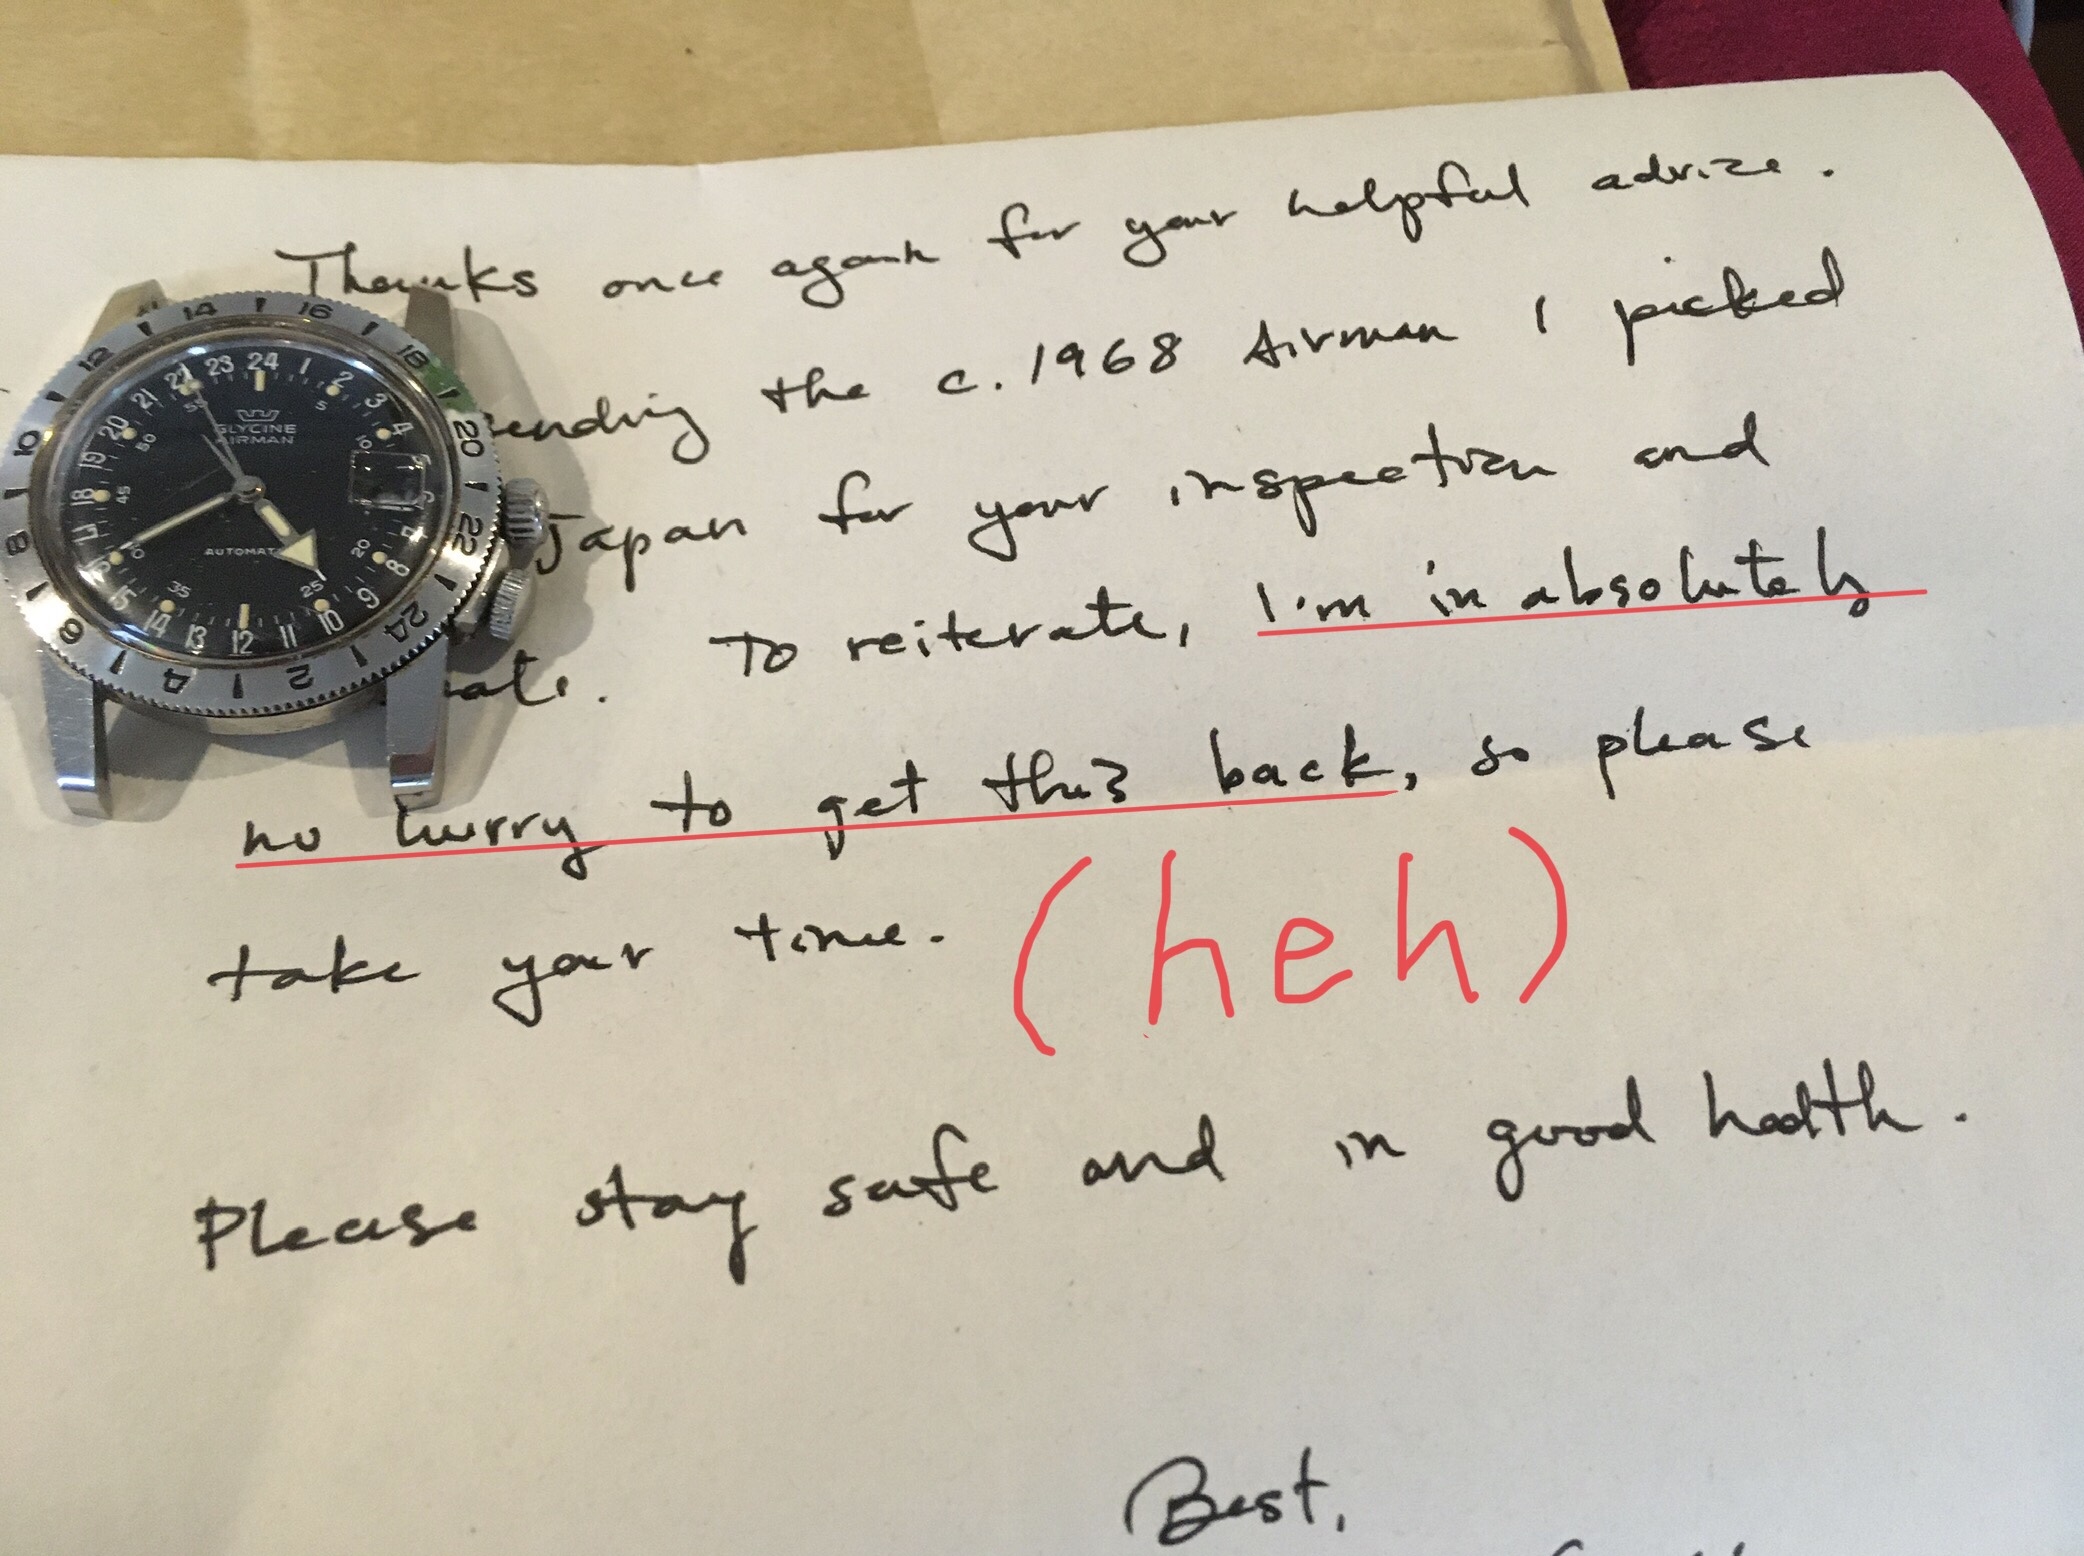 Thanks once again for your helpful advize.
sending the c. 1968 Airman I picked
Japan for your inspection and
To reiterate, I'm in absolutely
no hurry to get this back, so please
take your time. (heh)
Please stay safe and in good health.
Best,
14 16 18 20 22 24 2 4 6 8 10 12
24 1 2 3 4 8 9 10 11 12 13 14 15 17 18 19 20 21 22 23
5 10 20 25 35 45 50 55
GLYCINE
AIRMAN
AUTOMAT